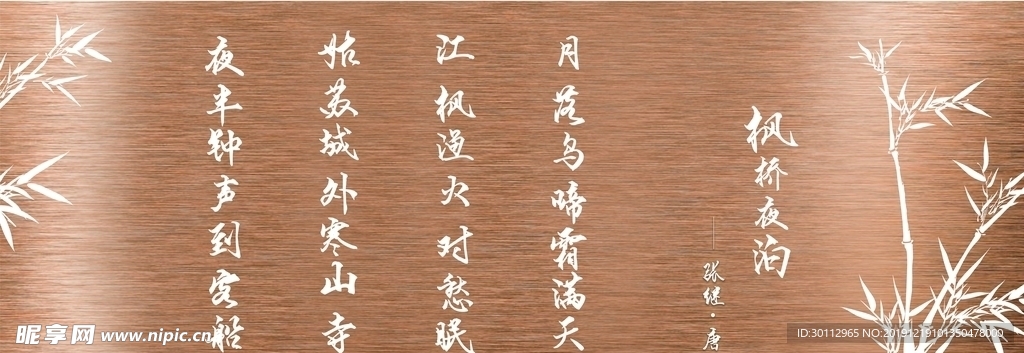 枫桥夜泊
——张继·唐
月落鸟啼霜满天
江枫渔火对愁眠
姑苏城外寒山寺
夜半钟声到客船
昵享网 www.nipic.cn
ID:30112965 NO:20191219101350478000